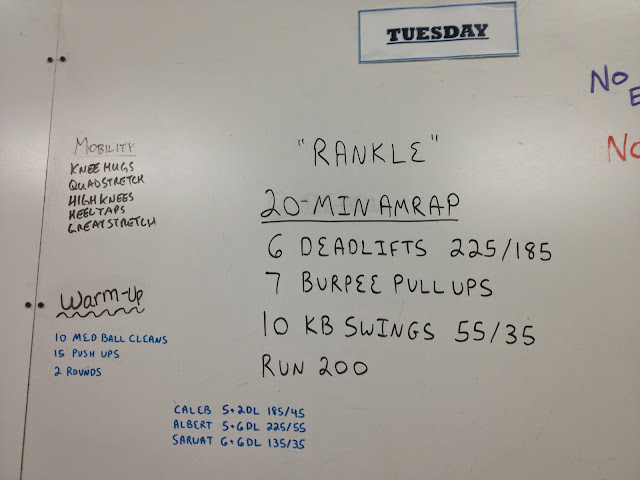 TUESDAY
NO
E
NO
MOBILITY
KNEE HUGS
QUADSTRETCH
HIGH KNEES
HEEL TAPS
GREAT STRETCH
"RANKLE"
20-MIN AMRAP
6 DEADLIFTS 225/185
7 BURPEE PULL UPS
10 KB SWINGS 55/35
RUN 200
Warm-Up
10 MED BALL CLEANS
15 PUSH UPS
2 ROUNDS
CALEB 5+2DL 185/45
ALBERT 5+6DL 225/55
SARVAT 6+6DL 135/35